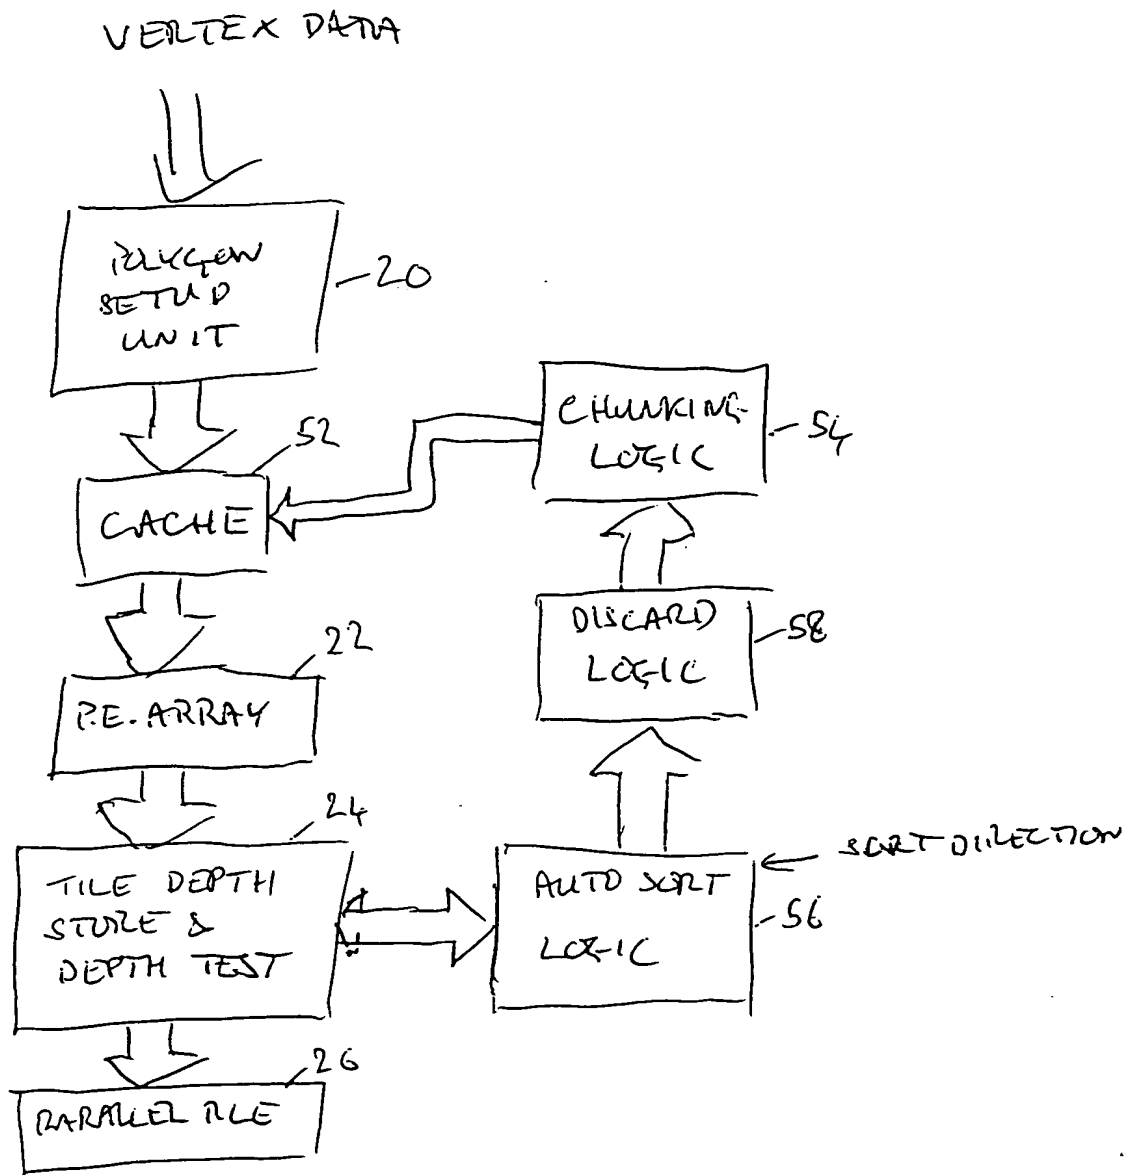 VERTEX DATA
POLYGON
SETUP
UNIT
20
52
CACHE
CHUNKING
LOGIC
54
22
P.E. ARRAY
DISCARD
LOGIC
58
24
TILE DEPTH
STORE &
DEPTH TEST
AUTO SORT
LOGIC
SORT DIRECTION
56
26
PARALLEL RLE